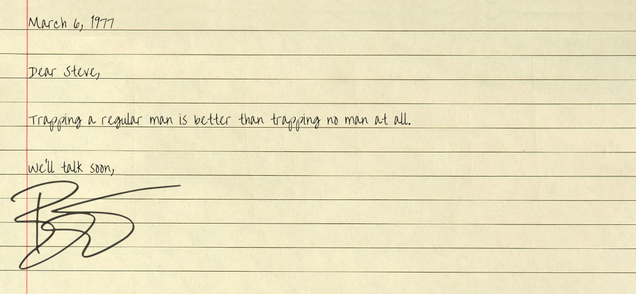 March 6, 1977
Dear Steve,
Trapping a regular man is better than trapping no man at all.
We'll talk soon,